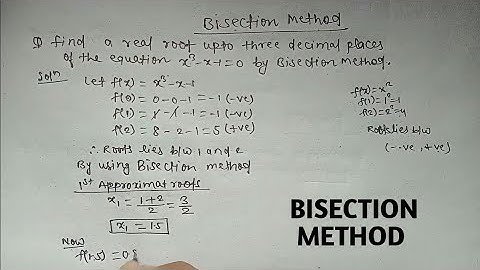 Bisection Method
Q) find a real root upto three decimal places
of the equation x³-x-1=0 by Bisection Method.
Solⁿ
Let f(x) = x³-x-1
f(0) = 0-0-1 = -1 (-ve)
f(1) = 1-1-1 = -1 (-ve)
f(2) = 8-2-1 = 5 (+ve)
∴ Roots lies b/w 1 and 2
By using Bisection method
1st Approximat roots
x₁ = 1+2/2 = 3/2
x₁ = 1.5
Now
f(1.5) = 0.8
f(x) = x²
f(1) = 1² = 1
f(2) = 2² = 4
Roots lies b/w
(-ve, +ve)
BISECTION
METHOD